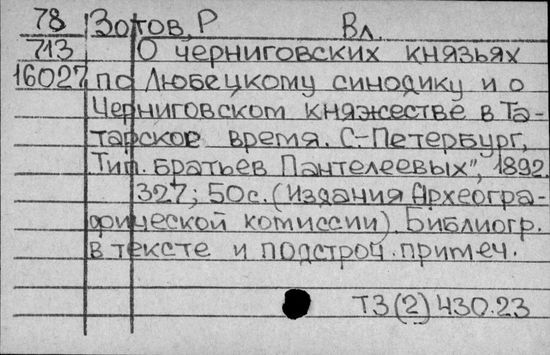 78 Зотов, Р Вл.
713 О черниговских князьях
16027 по Любецкому синодику и о
Черниговском княжестве в Та-
тарское время. С.-Петербург,
Тип. братьев Пантелеевых", 1892.
327; 50с. (Издания Археогра-
фической комиссии). Библиогр.
в тексте и подстроч. примеч.
Т3(2)430.23